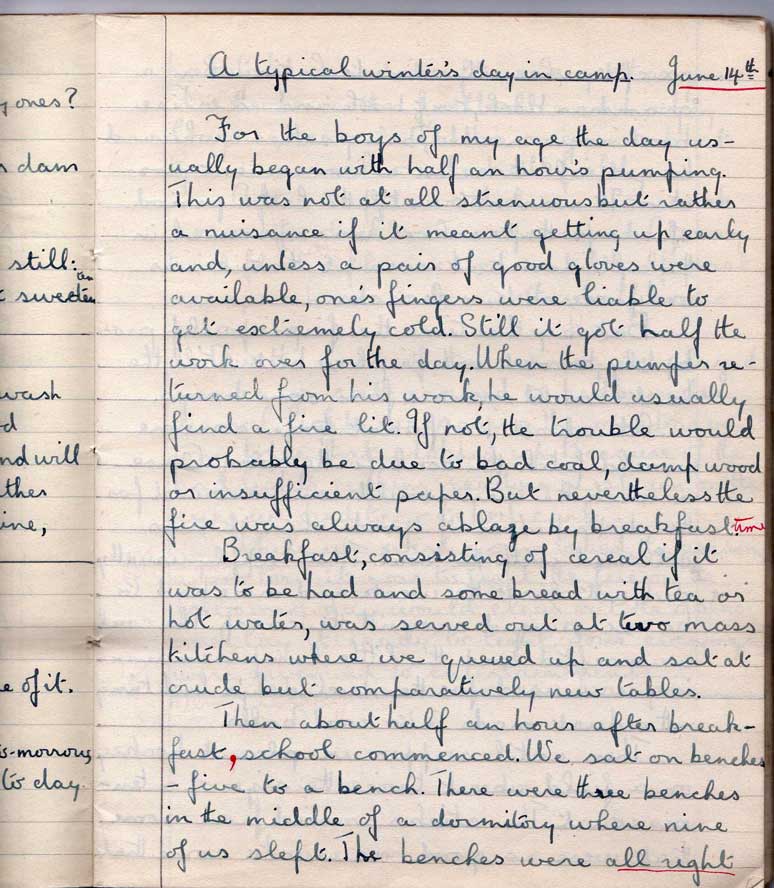 y ones?
dam
still:
ten
sweeten
wash
d
nd will
ther
ine,
e of it.
is-morrow
to day.
A typical winter's day in camp. June 14th
For the boys of my age the day us-
ually began with half an hour's pumping.
This was not at all strenuous but rather
a nuisance if it meant getting up early
and, unless a pair of good gloves were
available, one's fingers were liable to
get extremely cold. Still it got half the
work over for the day. When the pumper re-
turned from his work, he would usually
find a fire lit. If not, the trouble would
probably be due to bad coal, damp wood
or insufficient paper. But nevertheless the
fire was always ablaze by breakfast time
Breakfast, consisting of cereal if it
was to be had and some bread with tea or
hot water, was served out at two mass
kitchens where we queued up and sat at
crude but comparatively new tables.
Then about half an hour after break-
fast, school commenced. We sat on benches
- five to a bench. There were three benches
in the middle of a dormitory where nine
of us slept. The benches were all right